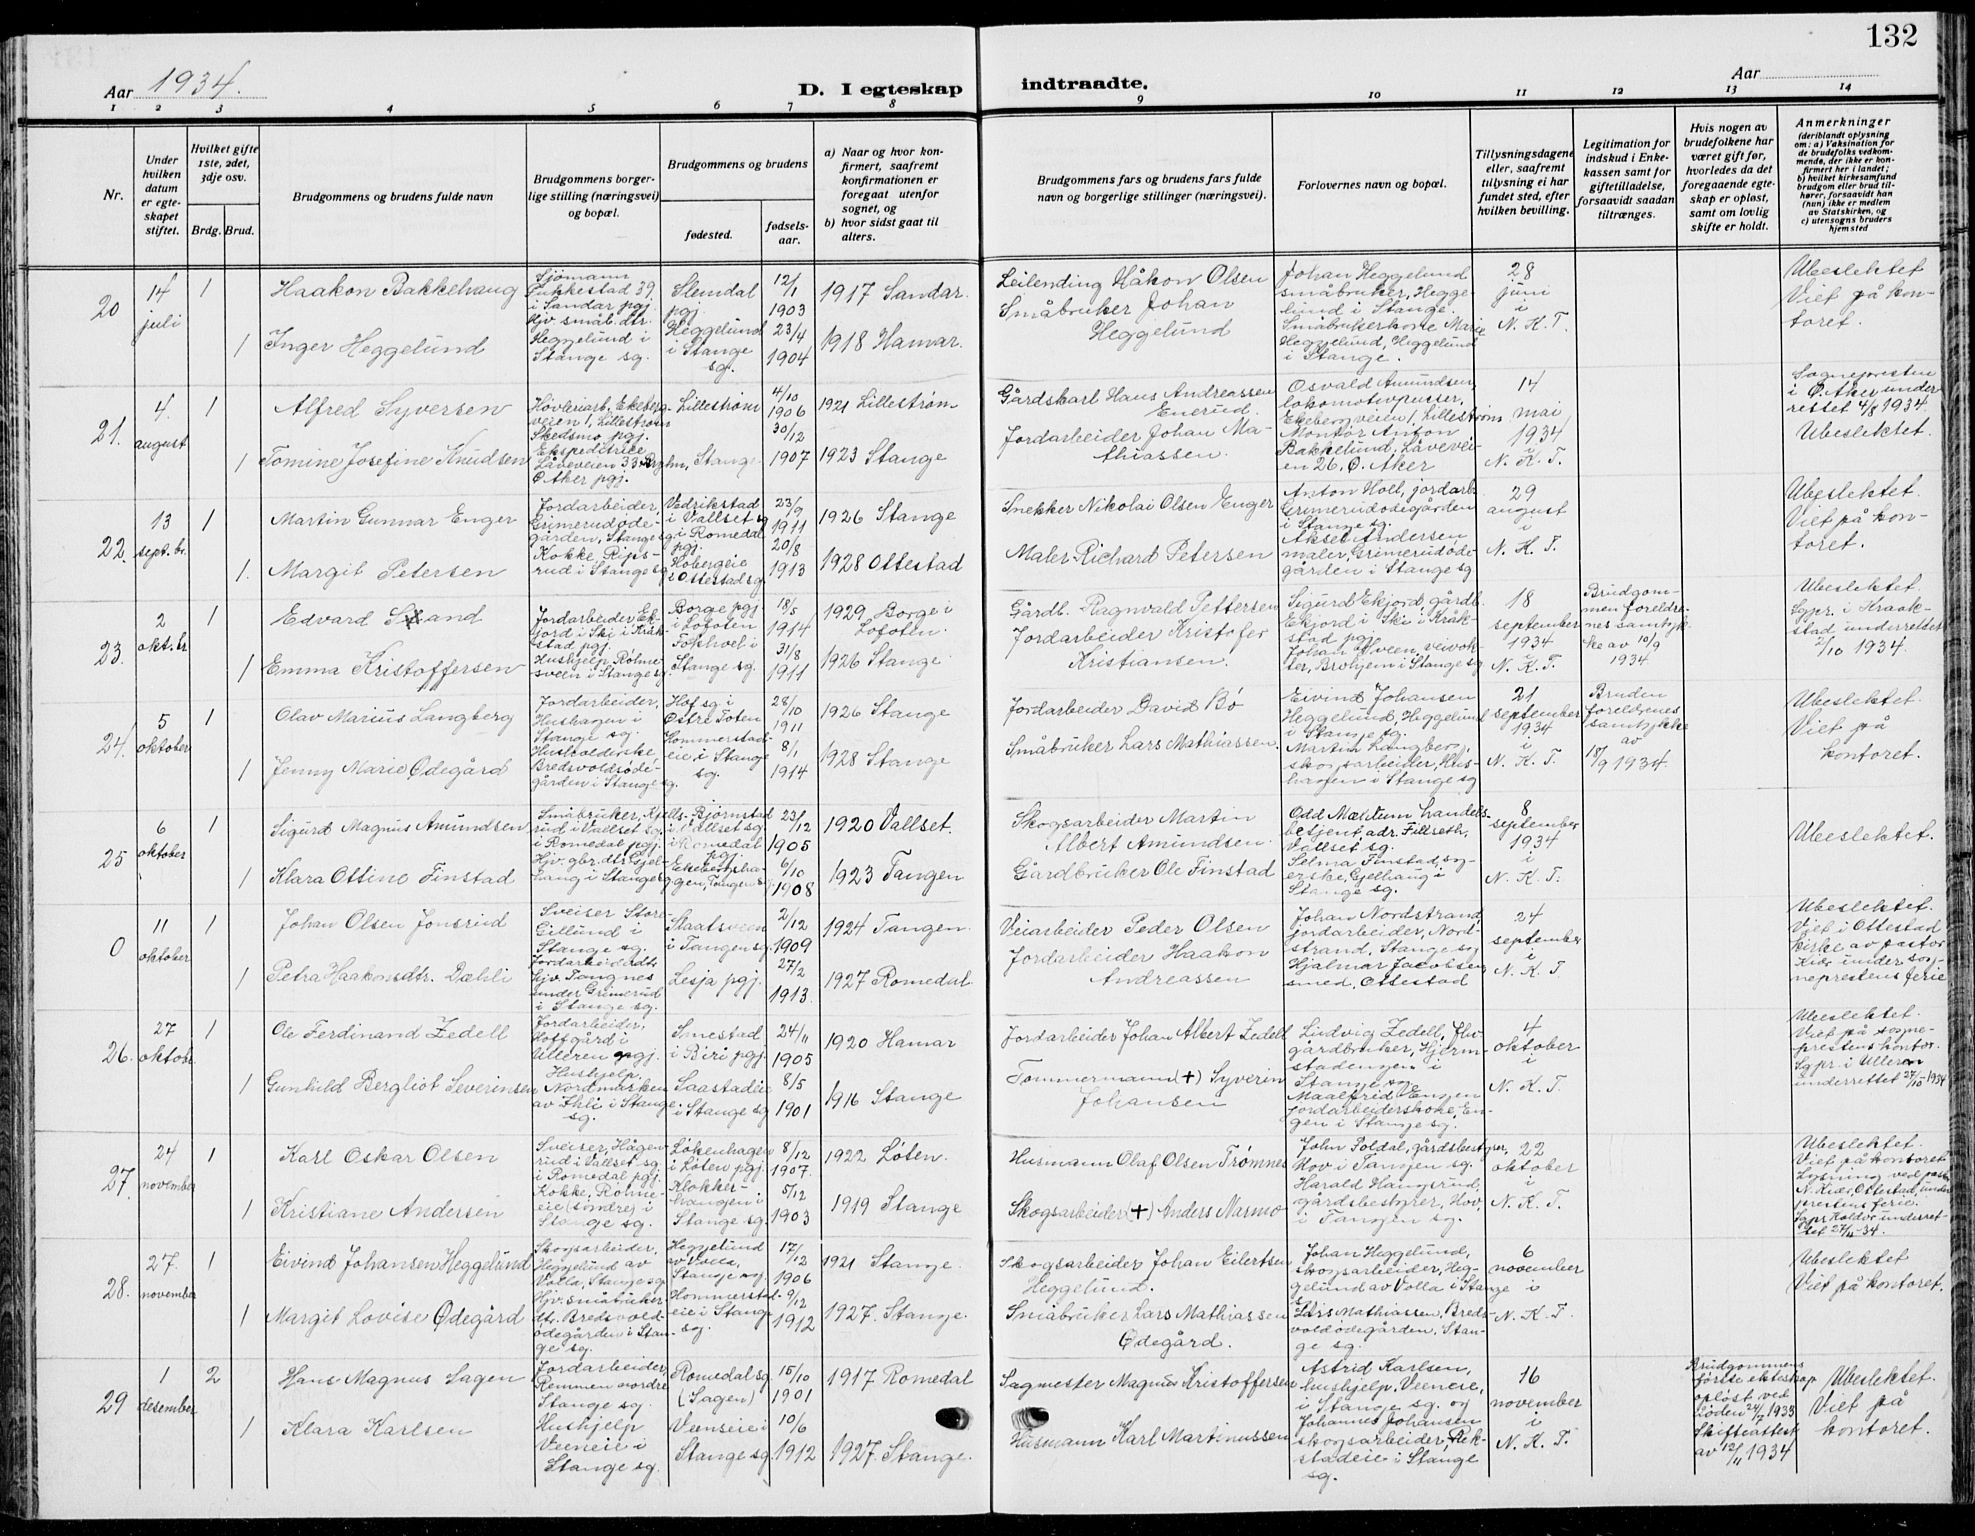 132
Aar 1934.
D. I egteskap indtraadte.
Aar
1 2 3 4 5 6 7 8 9 10 11 12 13 14
Nr.
Under hvilken datum er egteskapet stiftet.
Hvilket gifte 1ste, 2det, 3dje osv.
Brdg. Brud.
Brudgommens og brudens fulde navn
Brudgommens borgerlige stilling (næringsvei) og bopæl.
Brudgommens og brudens
fødested.
fødselsaar.
a) Naar og hvor konfirmert, saafremt konfirmationen er foregaat utenfor sognet, og
b) hvor sidst gaat til alters.
Brudgommens fars og brudens fars fulde navn og borgerlige stillinger (næringsvei).
Forlovernes navn og bopæl.
Tillysningsdagene eller, saafremt tillysning ei har fundet sted, efter hvilken bevilling.
Legitimation for indskud i Enkekassen samt for giftetilladelse, forsaavidt saadan tiltrænges.
Hvis nogen av brudefolkene har været gift før, hvorledes da det foregaaende egteskap er opløst, samt om lovlig skifte er holdt.
Anmerkninger
(deriblandt oplysning om: a) Vaksination for de brudefolks vedkommende, der ikke er konfirmert her i landet;
b) hvilket kirkesamfund brudgom eller brud tilhører, forsaavidt han (hun) ikke er medlem av Statskirken, og
c) utensogns bruders hjemsted
20 14 juli 1 Haakon Bakkehaug
Sjømann
i Sandar pgj.
Slemdal pgj.
12/1 1903
1917 Sandar.
Leilending Håkon Olsen
Johan Heggelund småbruker, Heggelund i Stange.
28 juni i N. K. T.
Ubeslektet Viet på kontoret.
1 Inger Heggelund
Hjv. småb. dtr. Heggelund i Stange sg.
Heggelund i Stange sg.
23/4 1904
1918 Hamar.
Småbruker Johan Heggelund
Småbrukerkone Marie Heggelund, Heggelund i Stange.
21. 4. august 1 Alfred Syversen
Høvleriarb. Ekebergveien 1, Lillestrøm Skedsmo pgj.
Lillestrøm
4/10 1906
1921 Lillestrøm
Gårdskarl Hans Andreassen Enerud.
Osvald Amundsen, lokomotivpusser, Ekebergveien 1, Lillestrøm
14 mai 1934 i N. K. T.
Sognepresten i Ø. Aker underrettet 4/8 1934. Ubeslektet.
1 Tomine Josefine Knudsen
Ekspeditrice Låveveien 33 Ø. Aker pgj.
Stange
30/12 1907
1923 Stange
Jordarbeider Johan Mathiassen.
Montør Anton Bakkelund, Låveveien 26, Ø. Aker
22. 13 sept.br. 1 Martin Gunnar Enger
Jordarbeider, Grimerudødegården, Stange sg
Vedrikstad i Vallset sg i Romedal pgj.
23/9 1911
1926 Stange
Snekker Nikolai Olsen Enger
Anton Holt, jordarb. Grimerudødegården i Stange sg.
29 august i N. K. T.
Ubeslektet. Viet på kontoret.
1. Margit Petersen
Kokke, Ripsrud i Stange sg
Hobergeie i Ottestad sg
20/8 1913
1928 Ottestad
Maler Richard Petersen
Aksel Andersen maler, Grimerudødegården i Stange sg
23. 2 okt.br 1 Edvard Strand
Jordarbeider, Ekjord i Ski i Kråkstad pgj.
Borge pgj i Lofoten
18/5 1914
1929 Borge i Lofoten.
Gårdb. Ragnvald Pettersen
Sigurd Ekjord, gårdb. Ekjord i Ski i Kråkstad pgj.
18 september 1934 i N. K. T.
Brudgommen foreldrenes samtykke av 10/9 1934
Ubeslektet. Sgpr. i Kraakstad underrettet 2/10 1934.
1 Emma Kristoffersen
Hushjelp Røhmesveen i Stange sg.
Stange sg.
31/8 1911
1926 Stange
Jordarbeider Kristofer Kristiansen.
Johan Hveen, veivokter, Brohjem i Stange sg
24. 5 oktober 1 Olav Marius Langberg
Jordarbeider, Hushagen i Stange sg.
Hof sg i Østre Toten
28/10 1911
1926 Stange
Jordarbeider David Bø
Eivind Johansen Heggelund, Heggelund i Stange sg.
21 september 1934 i N. K. T.
Bruden foreldrenes samtykke av 18/9 1934.
Ubeslektet. Viet på kontoret.
1 Jenny Marie Ødegård
Husholderske, Bredsvoldsødegården i Stange sg.
Hommerstadeie i Stange sg.
8/1 1914
1928 Stange
Småbruker Lars Mathiassen.
Martin Langberg, skogsarbeider, Hushagen i Stange sg
25 6 oktober 1 Sigurd Magnus Amundsen
Småbruker, Kjellsrud i Vallset sg. i Romedal pgj.
Bjørnstad i Vallset sg. i Romedal pgj.
23/12 1905
1920 Vallset.
Skogsarbeider Martin Albert Amundsen.
Odd Mælstum handelsbetjent adr. Fillseth, Vallset sg.
8 september 1934 i N. K. T.
Ubeslektet.
1 Klara Ottine Finstad
Hjv. gbr. dtr. Gjelhaug i Stange sg
Ekeberghagen, Tangen sg
6/10 1908
1923 Tangen
Gårdbruker Ole Finstad
Selma Finstad, syerske, Gjelhaug i Stange sg.
0 11 oktober 1 Johan Olsen Jonsrud
Sveiser Store Gillund i Stange sg.
Staatsveen i Tangen sg.
2/12 1909
1924 Tangen.
Veiarbeider Peder Olsen
Johan Nordstrand jordarbeider, Nordstrand, Stange sg
24 september i N. K. T
Ubeslektet. Viet i Ottestad kirke av pastor Kiær under sogneprestens ferie
1 Petra Haakonsdtr. Dæhli
Jordarbeiderdtr Hjv. Tangnes under Grimerud i Stange sg.
Lesja pgj.
27/2 1913.
1927 Romedal.
Jordarbeider Haakon Andreassen
Hjalmar Jacobsen smed, Ottestad
26. 27 oktobr. 1 Ole Ferdinand Zedell
Jordarbeider, Hoffgård i Ulleren pgj.
Smestad i Biri pgj.
24/11 1905
1920 Hamar
Jordarbeider Johan Albert Zedell
Ludvig Zedell, gårdbruker, Hjermstadengen i Stange sg
4 oktober i N. K. T.
Ubeslektet. Viet på sogneprestens kontor. Sgpr. i Ulleren underrettet 27/10-1934
1 Gunhild Bergliot Severinsen
Hushjelp. Nordmarken av Ihli i Stange sg.
Saastadeie i Stange sg
8/5 1901
1916 Stange
Tømmermann (+) Syverin Johansen
Maalfrid Engen jordarbeiderskone, Engen i Stange sg.
27. 24 november 1 Karl Oskar Olsen
Sveiser, Hågenrud i Vallset sg. i Romedal pgj.
Løkenhagen i Løten pgj.
8/12 1907.
1922 Løten.
Husmann Olaf Olsen Trømnes
John Poldal, gårdsbestyrer, Hov i Tangen sg.
22 oktober i N. K. T.
Ubeslektet. Viet på kontoret. Lysning ved pastor N. Kiær, Ottestad, under prestens ferie.
1 Kristiane Andersen
Kokke, Røhmeeie (søndre) i Stange sg.
Klokkerhaugen i Stange sg.
5/12 1903
1919 Stange
Skogsarbeider (+) Anders Narmo
Harald Haugsrud, gårdsbestyrer, Hov, i Tangen sg.
28. 27. november 1 Eivind Johansen Heggelund
Skogsarbeider, Heggelund av Volla, Stange sg
Heggelund av Volla, Stange sg.
17/12 1906
1921 Stange.
Skogsarbeider Johan Eilertsen Heggelund.
Johan Heggelund, skogsarbeider, Heggelund av Volla i Stange
6 november i N. K. T.
Ubeslektet Viet på kontoret.
1 Margit Lovise Ødegård
Hjv. småbrukerdtr. Bredsvoldødegården i Stange sg.
Hommerstadeie i Stange sg.
9/12 1912
1927. Stange.
Småbruker Lars Mathiassen Ødegård.
Lars Mathiassen, Bredsvoldødegården, Stange sg.
29 1 desember 2 Hans Magnus Sagen
Jordarbeider, Remmen nordre Stange sg.
Romedal sg. (Sagen)
15/10 1901
1917 Romedal
Sagmester Magnus Kristoffersen
Astrid Karlsen, hushjelp, Veeneie, i Stange sg. og
16 november i N. K. T.
Brudgommens første ekteskap opløst ved døden 24/7 1933 Skifteattest av 12/11 1934
Ubeslektet. Viet på kontoret.
1 Klara Karlsen
Hushjelp Veeneie i Stange sg.
Veenseie i Stange sg.
10/6 1912
1927. Stange.
Husmann Karl Martinussen
Johannes Johansen skogsarbeider, Rekstadeie i Stange sg.